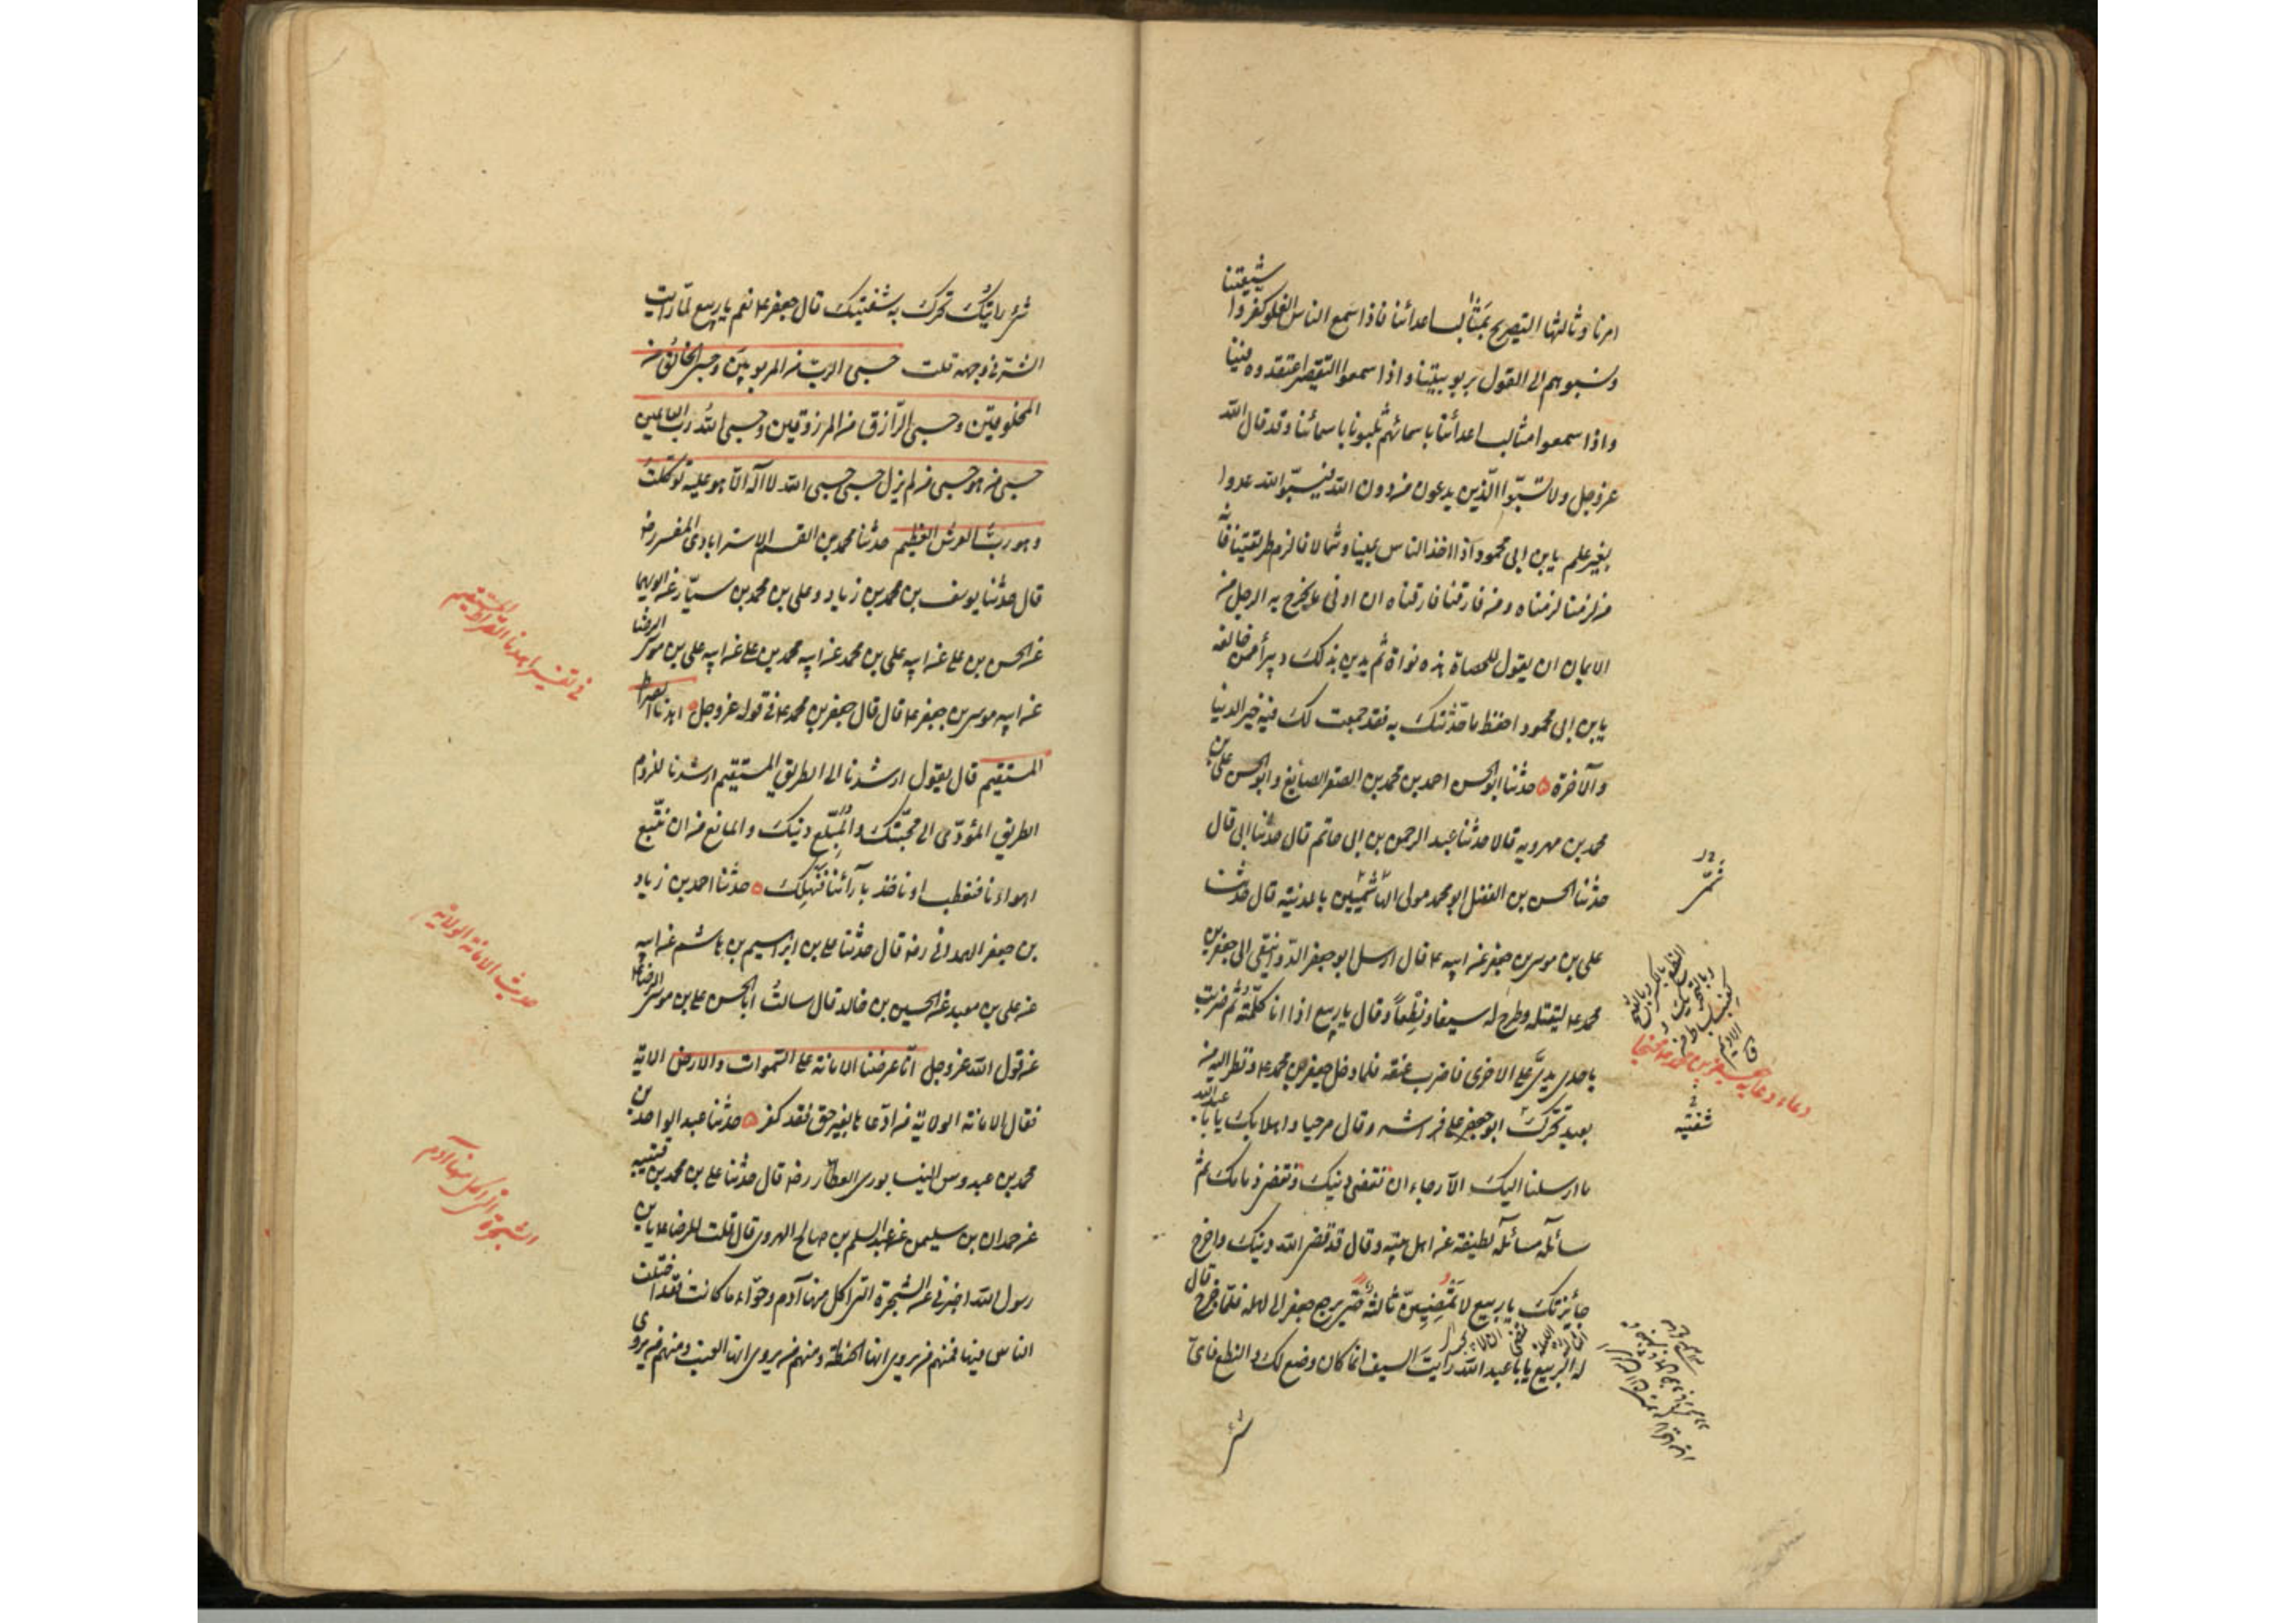 شيعتنا
امرنا وثالثها التصريح بمثالب اعدائنا فاذا سمع الناس الغلو كفروا
ونسبوهم الى القول بربوبيتنا واذا سمعوا التقصير اعتقدوه فينا
واذا سمعوا مثالب اعدائنا باسمائهم ثلبونا باسمائنا وقد قال الله
عز وجل ولا تسبّوا الذين يدعون من دون الله فيسبّوا الله عدوا
بغير علم يابن ابى محمود اذا اخذ الناس يمينا وشمالا فالزم طريقتنا فانه
من لزمنا لزمناه ومن فارقنا فارقناه ان ادنى ما يخرج به الرجل من
الايمان ان يقول للحصاة هذه نواة ثم يدين بذلك ويبرأ ممن خالفه
يابن ابى محمود احفظ ما حدّثتك به فقد جمعت لك فيه خير الدنيا
والآخرة حدثنا ابو الحسن احمد بن محمد بن الصقر الصايغ وابو الحسن على بن
محمد بن مهرويه قالا حدثنا عبد الرحمن بن ابى حاتم قال حدثنا ابى قال
حدثنا الحسن بن الفضل ابو محمد مولى الهاشميين بالمدينة قال حدثنا
على بن موسى بن جعفر عن ابيه ع قال ارسل ابو جعفر الدوانيقى الى جعفر بن
محمد ع ليقتله وطرح له سيفا ونطعاً وقال يا ربيع اذا انا كلّمته ثم ضربت
باحدى يدىّ على الاخرى فاضرب عنقه فلما دخل جعفر بن محمد ع ونظر اليه من
بعيد تحرّك ابو جعفر على فراشه وقال مرحبا واهلا بك يا ابا عبد الله
ما ارسلنا اليك الا رجاء ان نقضى دينك ونقضى ذمامك ثم
سائله مسائلة لطيفة عن اهل بيته وقال قد قضى الله دينك واخرج
جائزتك يا ربيع لا تمضينّ ثالثة حتى يرجع جعفر الى اهله فلما خرج قال
له الربيع يا ابا عبد الله رايت السيف انما كان وضع لك والنطع فاىّ
شئ
شفتيه
شئ رايتك تحرك به شفتيك قال جعفر ع نعم يا ربيع لمّا رايت
الشر فى وجهه قلت حسبى الرب من المربوبين وحسبى الخالق من
المخلوقين وحسبى الرازق من المرزوقين وحسبى الله رب العالمين
حسبى من هو حسبى من لم يزل حسبى حسبى الله لا اله الا هو عليه توكلت
وهو رب العرش العظيم حدثنا محمد بن القسم الاسترابادى المفسر رض
قال حدثنا يوسف بن محمد بن زياد وعلى بن محمد بن سيّار عن ابويهما
عن الحسن بن على عن ابيه على بن محمد عن ابيه محمد بن على عن ابيه على بن موسى الرضا
عن ابيه موسى بن جعفر ع قال قال جعفر بن محمد ع فى قوله عز وجل اهدنا الصراط
المستقيم قال يقول ارشدنا الى الطريق المستقيم ارشدنا للزوم
الطريق المؤدّى الى محبّتك والمبلّغ دينك والمانع من ان نتّبع
اهواءنا فنعطب او ناخذ بآرائنا فنهلك حدثنا احمد بن زياد
بن جعفر الهمدانى رض قال حدثنا على بن ابراهيم بن هاشم عن ابيه
عن على بن معبد عن الحسين بن خالد قال سالت ابا الحسن على بن موسى الرضا ع
عن قول الله عز وجل انّا عرضنا الامانة على السموات والارض الاية
فقال الامانة الولاية من ادّعاها بغير حق فقد كفر حدثنا عبد الواحد بن
محمد بن عبدوس النيسابورى العطار رض قال حدثنا على بن محمد بن قتيبة
عن حمدان بن سليمن عن عبد السلم بن صالح الهروى قال قلت للرضا ع يابن
رسول الله اخبرنى عن الشجرة التى اكل منها آدم وحوّاء ما كانت فقد اختلف
الناس فيها فمنهم من يروى انها الحنطة ومنهم من يروى انها العنب ومنهم من يروى
فى تفسير اهدنا الصراط المستقيم
حديث الامانة الولاية
الشجرة التى اكل منها آدم